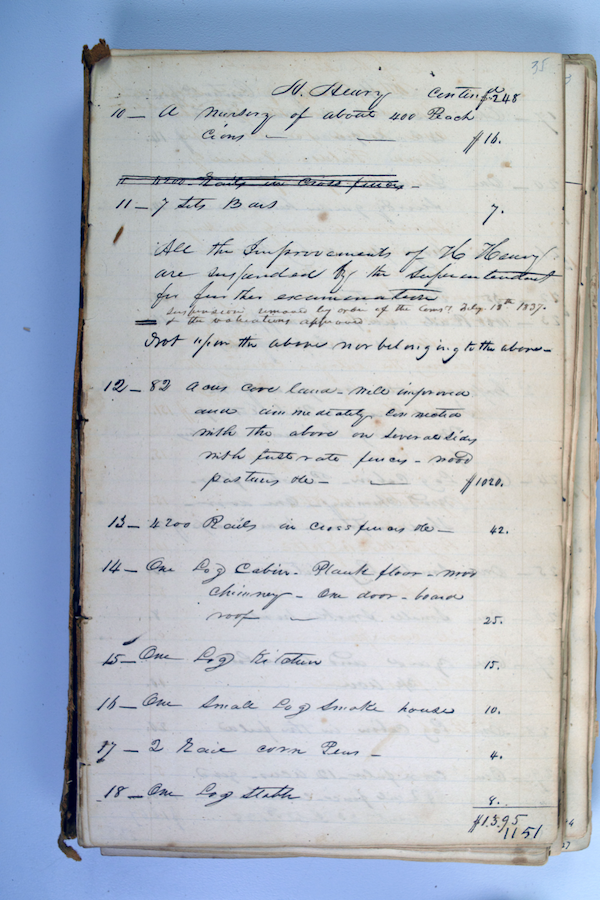 35
H. Henry Contind $248
10 — A nursery of about 400 Peach
Cions — — $16.
11 4200 Rails in cross fences —
11 — 7 Sets Bars 7.
All the Improvements of H Henry
are suspended by the Superintendent
for further examination
Suspension removed by order of the Comrs July 18th 1837.
& the valuations approved
Not upon the above nor belonging to the above —
12 — 82 acres cove land — well improved
and immediately connected
with the above on several sides
with first rate fences — wood
pastures &c — $1020.
13 — 4200 Rails in cross fences &c — 42.
14 — One Log Cabin. Plank floor —
chimney — One door — board
roof — 25.
15 — One Log Kitchen 15.
16 — One Small Log Smoke house 10.
17 — 2 Rail corn Pens — 4.
18 — One Log Stable 8.
$1.395
1151